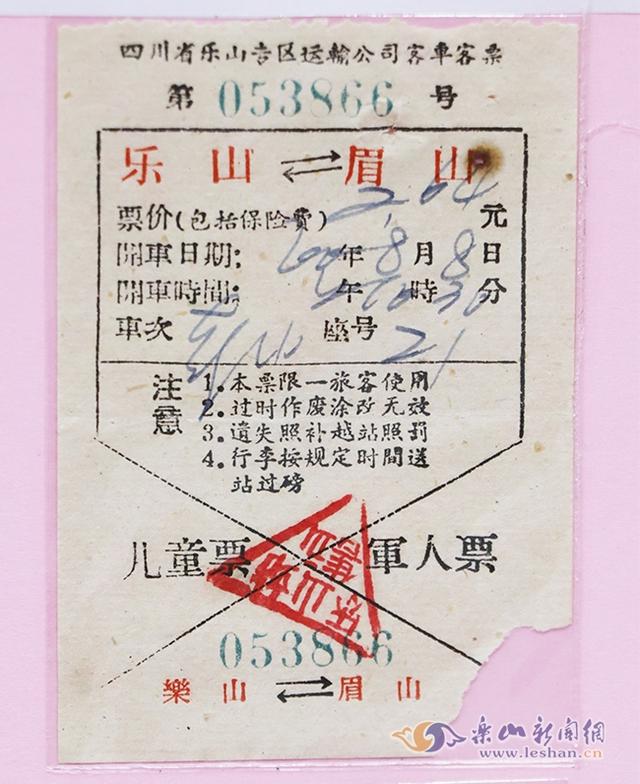 四川省乐山专区运输公司客車客票
第 053866 号
乐山⇄眉山
票价(包括保险费) 2.64 元
開車日期: 60 年 8 月 8 日
開車時間: 午 10 時 30 分
車次 座号 21
注意
1.本票限一旅客使用
2.过时作废涂改无效
3.遺失照补越站照罚
4.行李按规定时間送
站过磅
儿童票 軍人票
乐山站
售
053866
樂山⇄眉山
樂山新闻網
www.leshan.cn